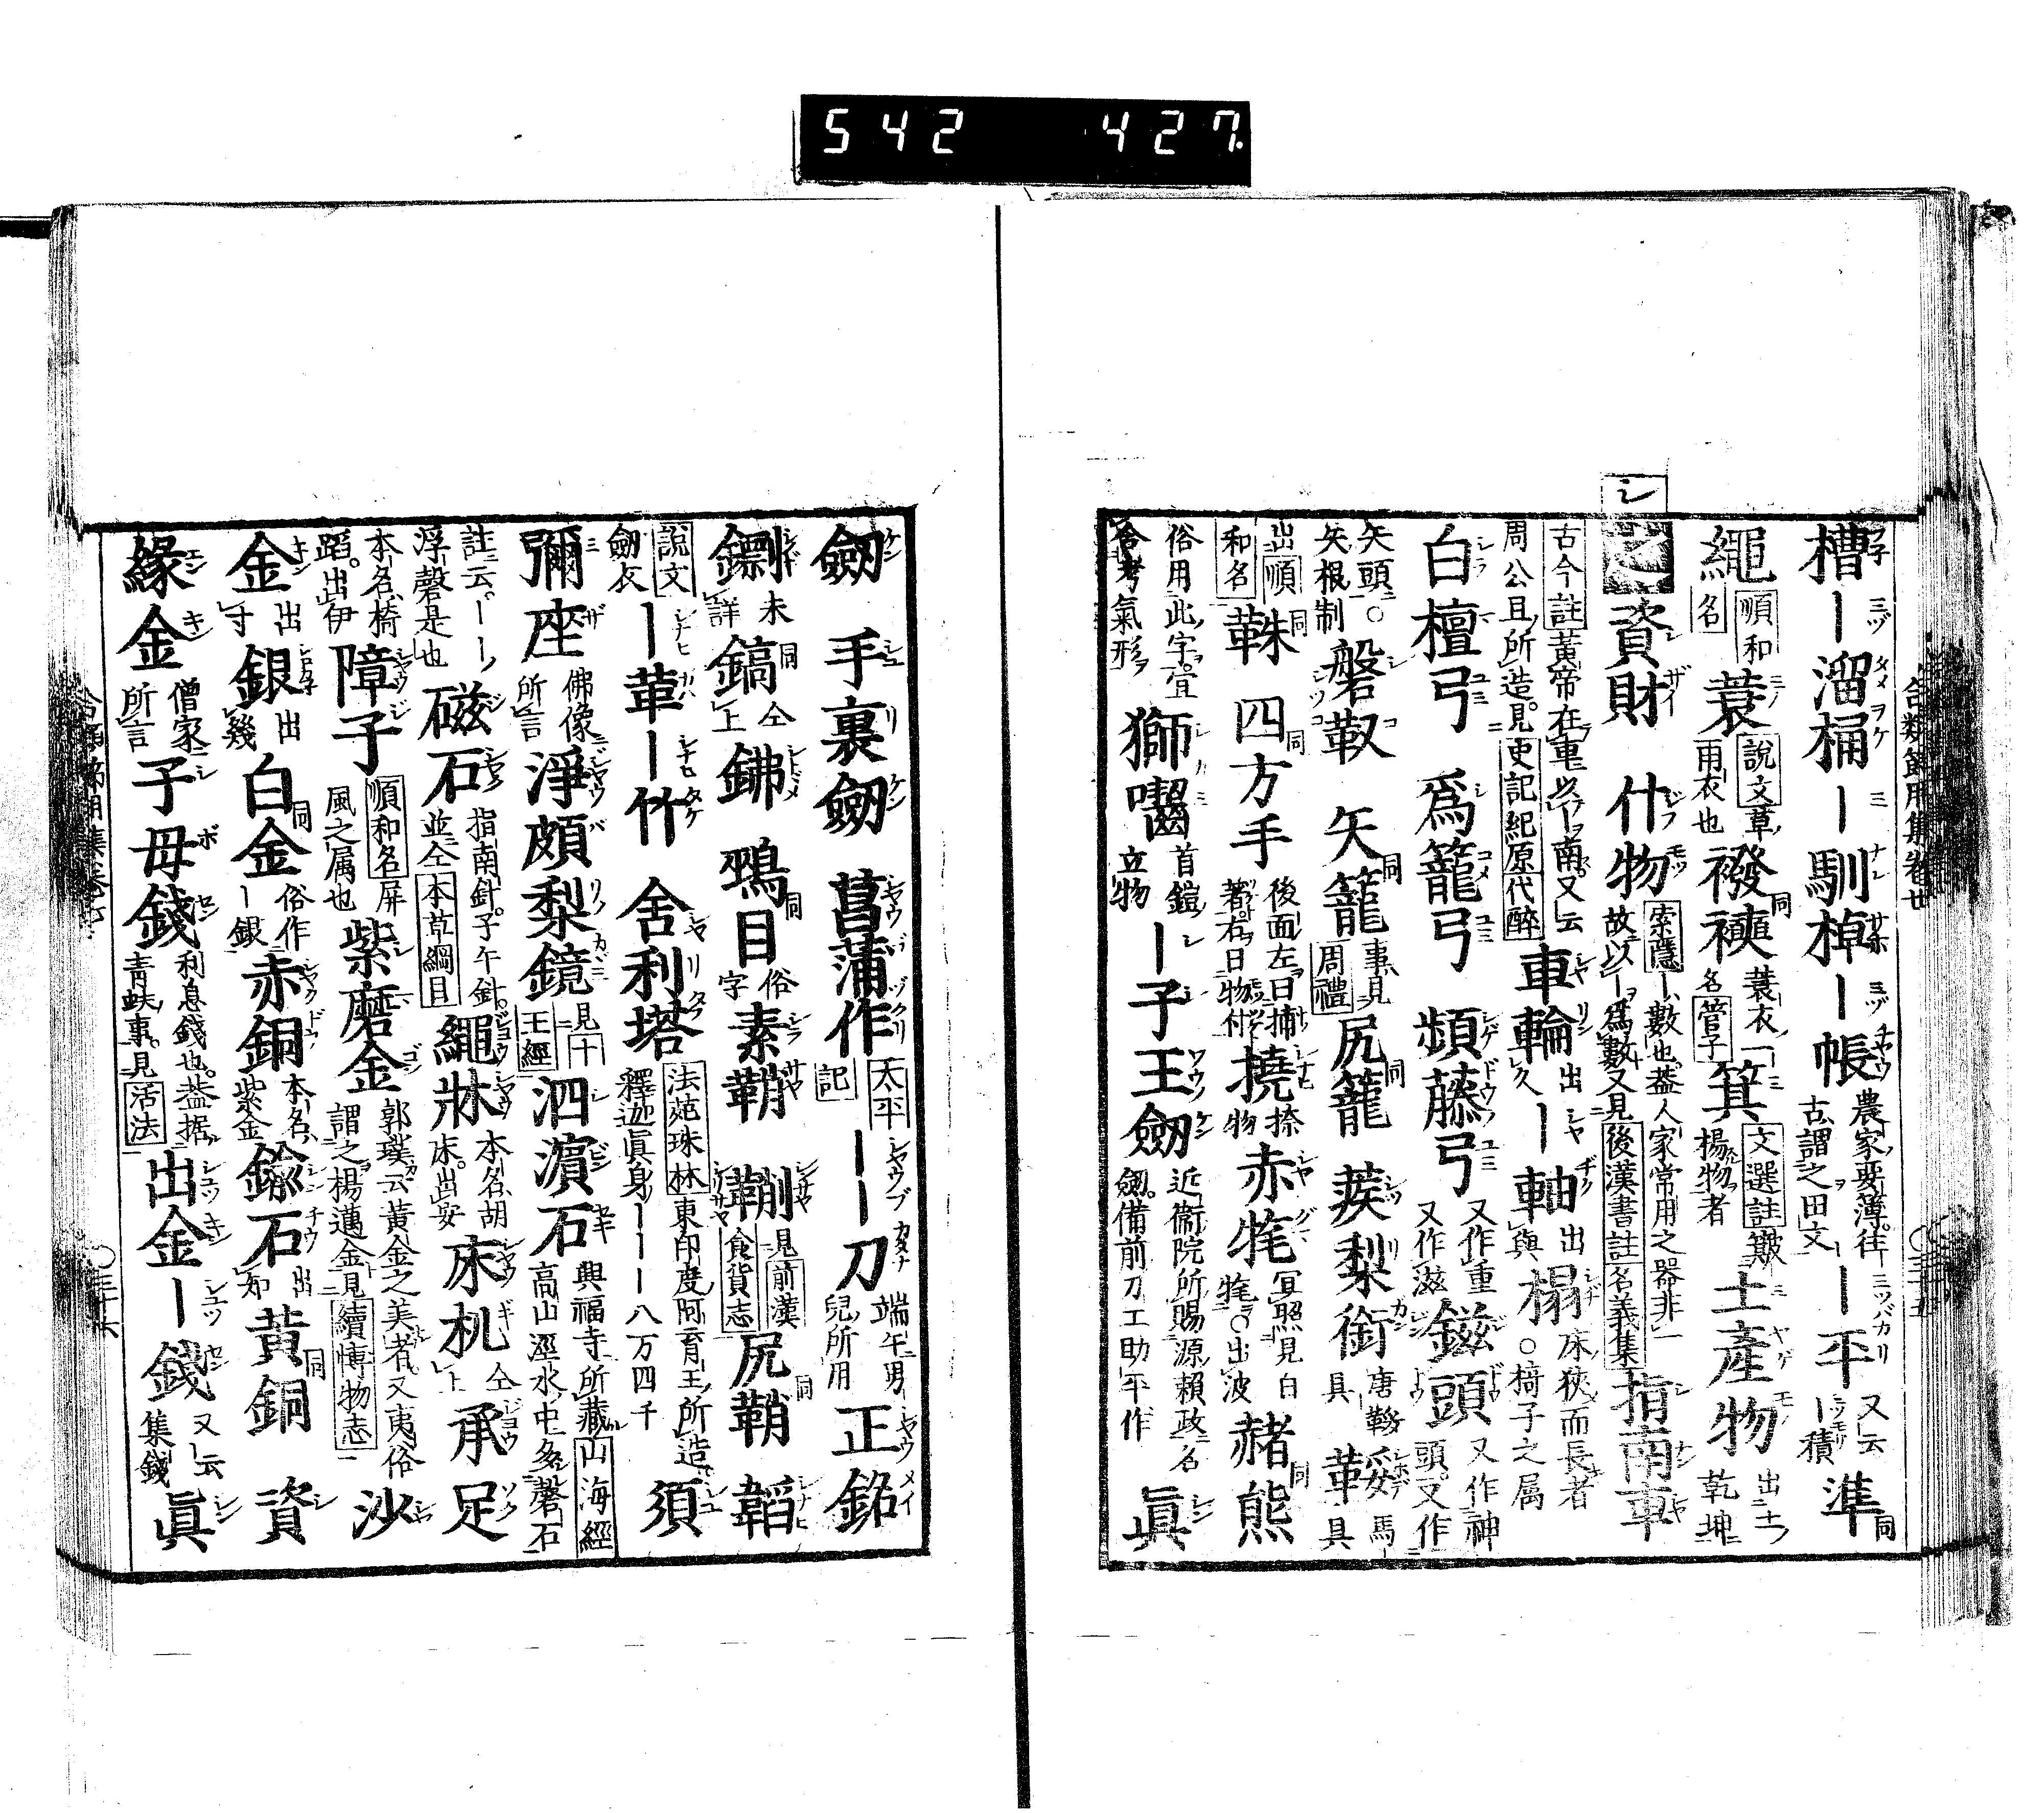 542 427
合類節用集卷廿
槽｜溜桶｜馴棹｜帳 農家要簿往古謂之田文 ｜平 又云｜積 準 同
繩 順和名 蓑 說文草雨衣也 襏襫 同 蓑衣一名 管子 箕 文選註簸揚物者 土産物 出土乾坤
シ之 資財 什物 索隱｜數也葢人家常用之器非一故以｜爲數又見後漢書註名義集 指南車
古今註黃帝在車必｜南又云周公且所造見吏記紀原代醉 車輪 出久 ｜軸 出與 榻 床狹而長者○椅子之属
白檀弓 爲籠弓 頻藤弓 又作重又作滋 鎡頭 又作神頭又作
矢頭○矢根制 磐靫 矢籠 同 事見周禮 尻籠 同 蒺梨銜 唐鞍具 鞌 馬具
出順和名 韎 同 四方手 同 後面左曰捕著右曰物付 撓 捺物 赤㲝 冝照見白㲝○出波 赭熊 同
俗用此字宜合考氣形 獅嚙 首鎧立物 ｜子王劔 近衞院所賜源頼政名劔備前刀工助平作 眞
劔 手裏劔 菖蒲作 太平記 ｜｜刀 端午男兒所用 正銘
鏢 未詳 鎬 同 仝上 鉘 鵐目 同 俗字 素鞘 鞩 見前漢食貨志 尻鞘 同 韜
說文劔衣 ｜革｜竹 舍利塔 法苑珠林東印度阿育王所造釋迦眞身｜｜｜八万四千 須
彌座 佛像所言 淨頗梨鏡 見十王經 泗濵石 與福寺所藏山海經高山涇水中多磬石
註云｜｜浮磬是也 磁石 指南針子午針並仝本草綱目 繩牀 本名胡床出安 床机 仝上 承足
本名椅蹈出伊 障子 順和名屏風之属也 紫磨金 郭璞云黃金之美者又夷俗謂之楊邁金見續博物志 沙
金 出寸 銀 出幾 白金 同 俗作｜銀 赤銅 本名紫金 鍮石 出知 黃銅 同 資
緣金 僧家所言 子母錢 利息錢也葢据靑蚨事見活法 出金｜錢 又云集錢 眞